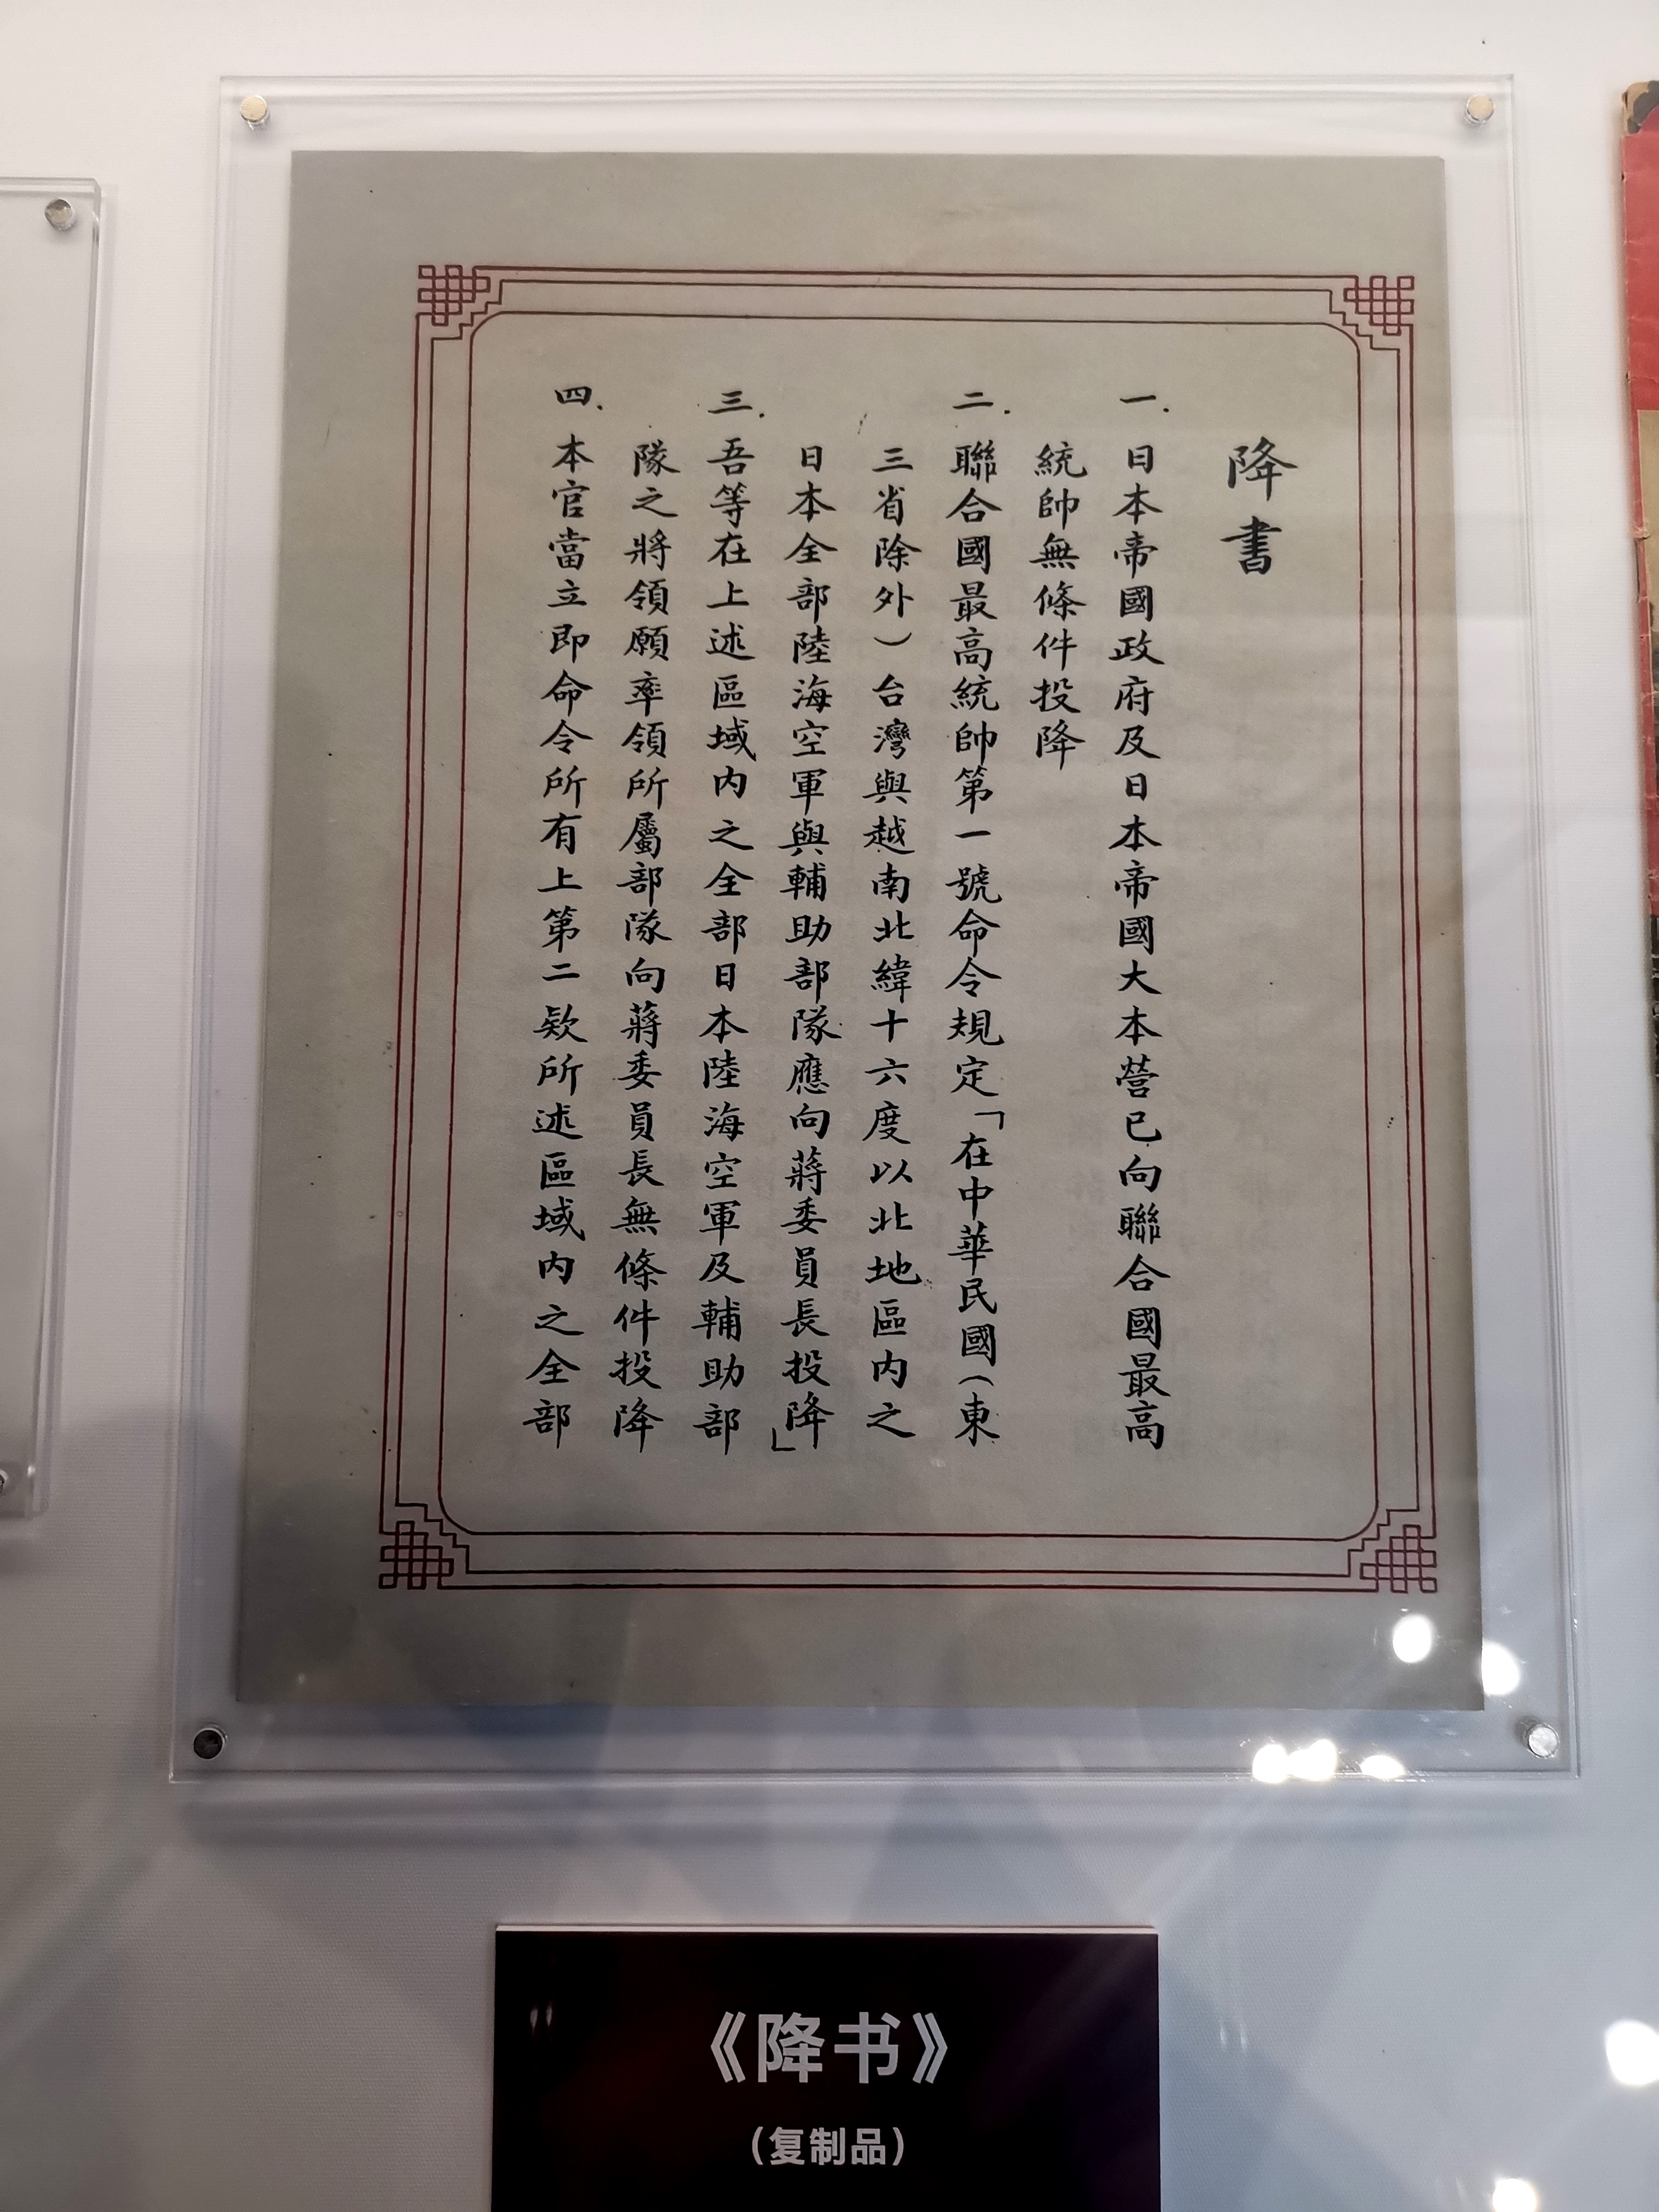 降書
一.日本帝國政府及日本帝國大本營已向聯合國最高
統帥無條件投降
二.聯合國最高統帥第一號命令規定「在中華民國(東
三省除外)台灣與越南北緯十六度以北地區內之
日本全部陸海空軍與輔助部隊應向蔣委員長投降」
三.吾等在上述區域內之全部日本陸海空軍及輔助部
隊之將領願率領所屬部隊向蔣委員長無條件投降
四.本官當立即命令所有上第二欵所述區域內之全部
《降书》
(复制品)